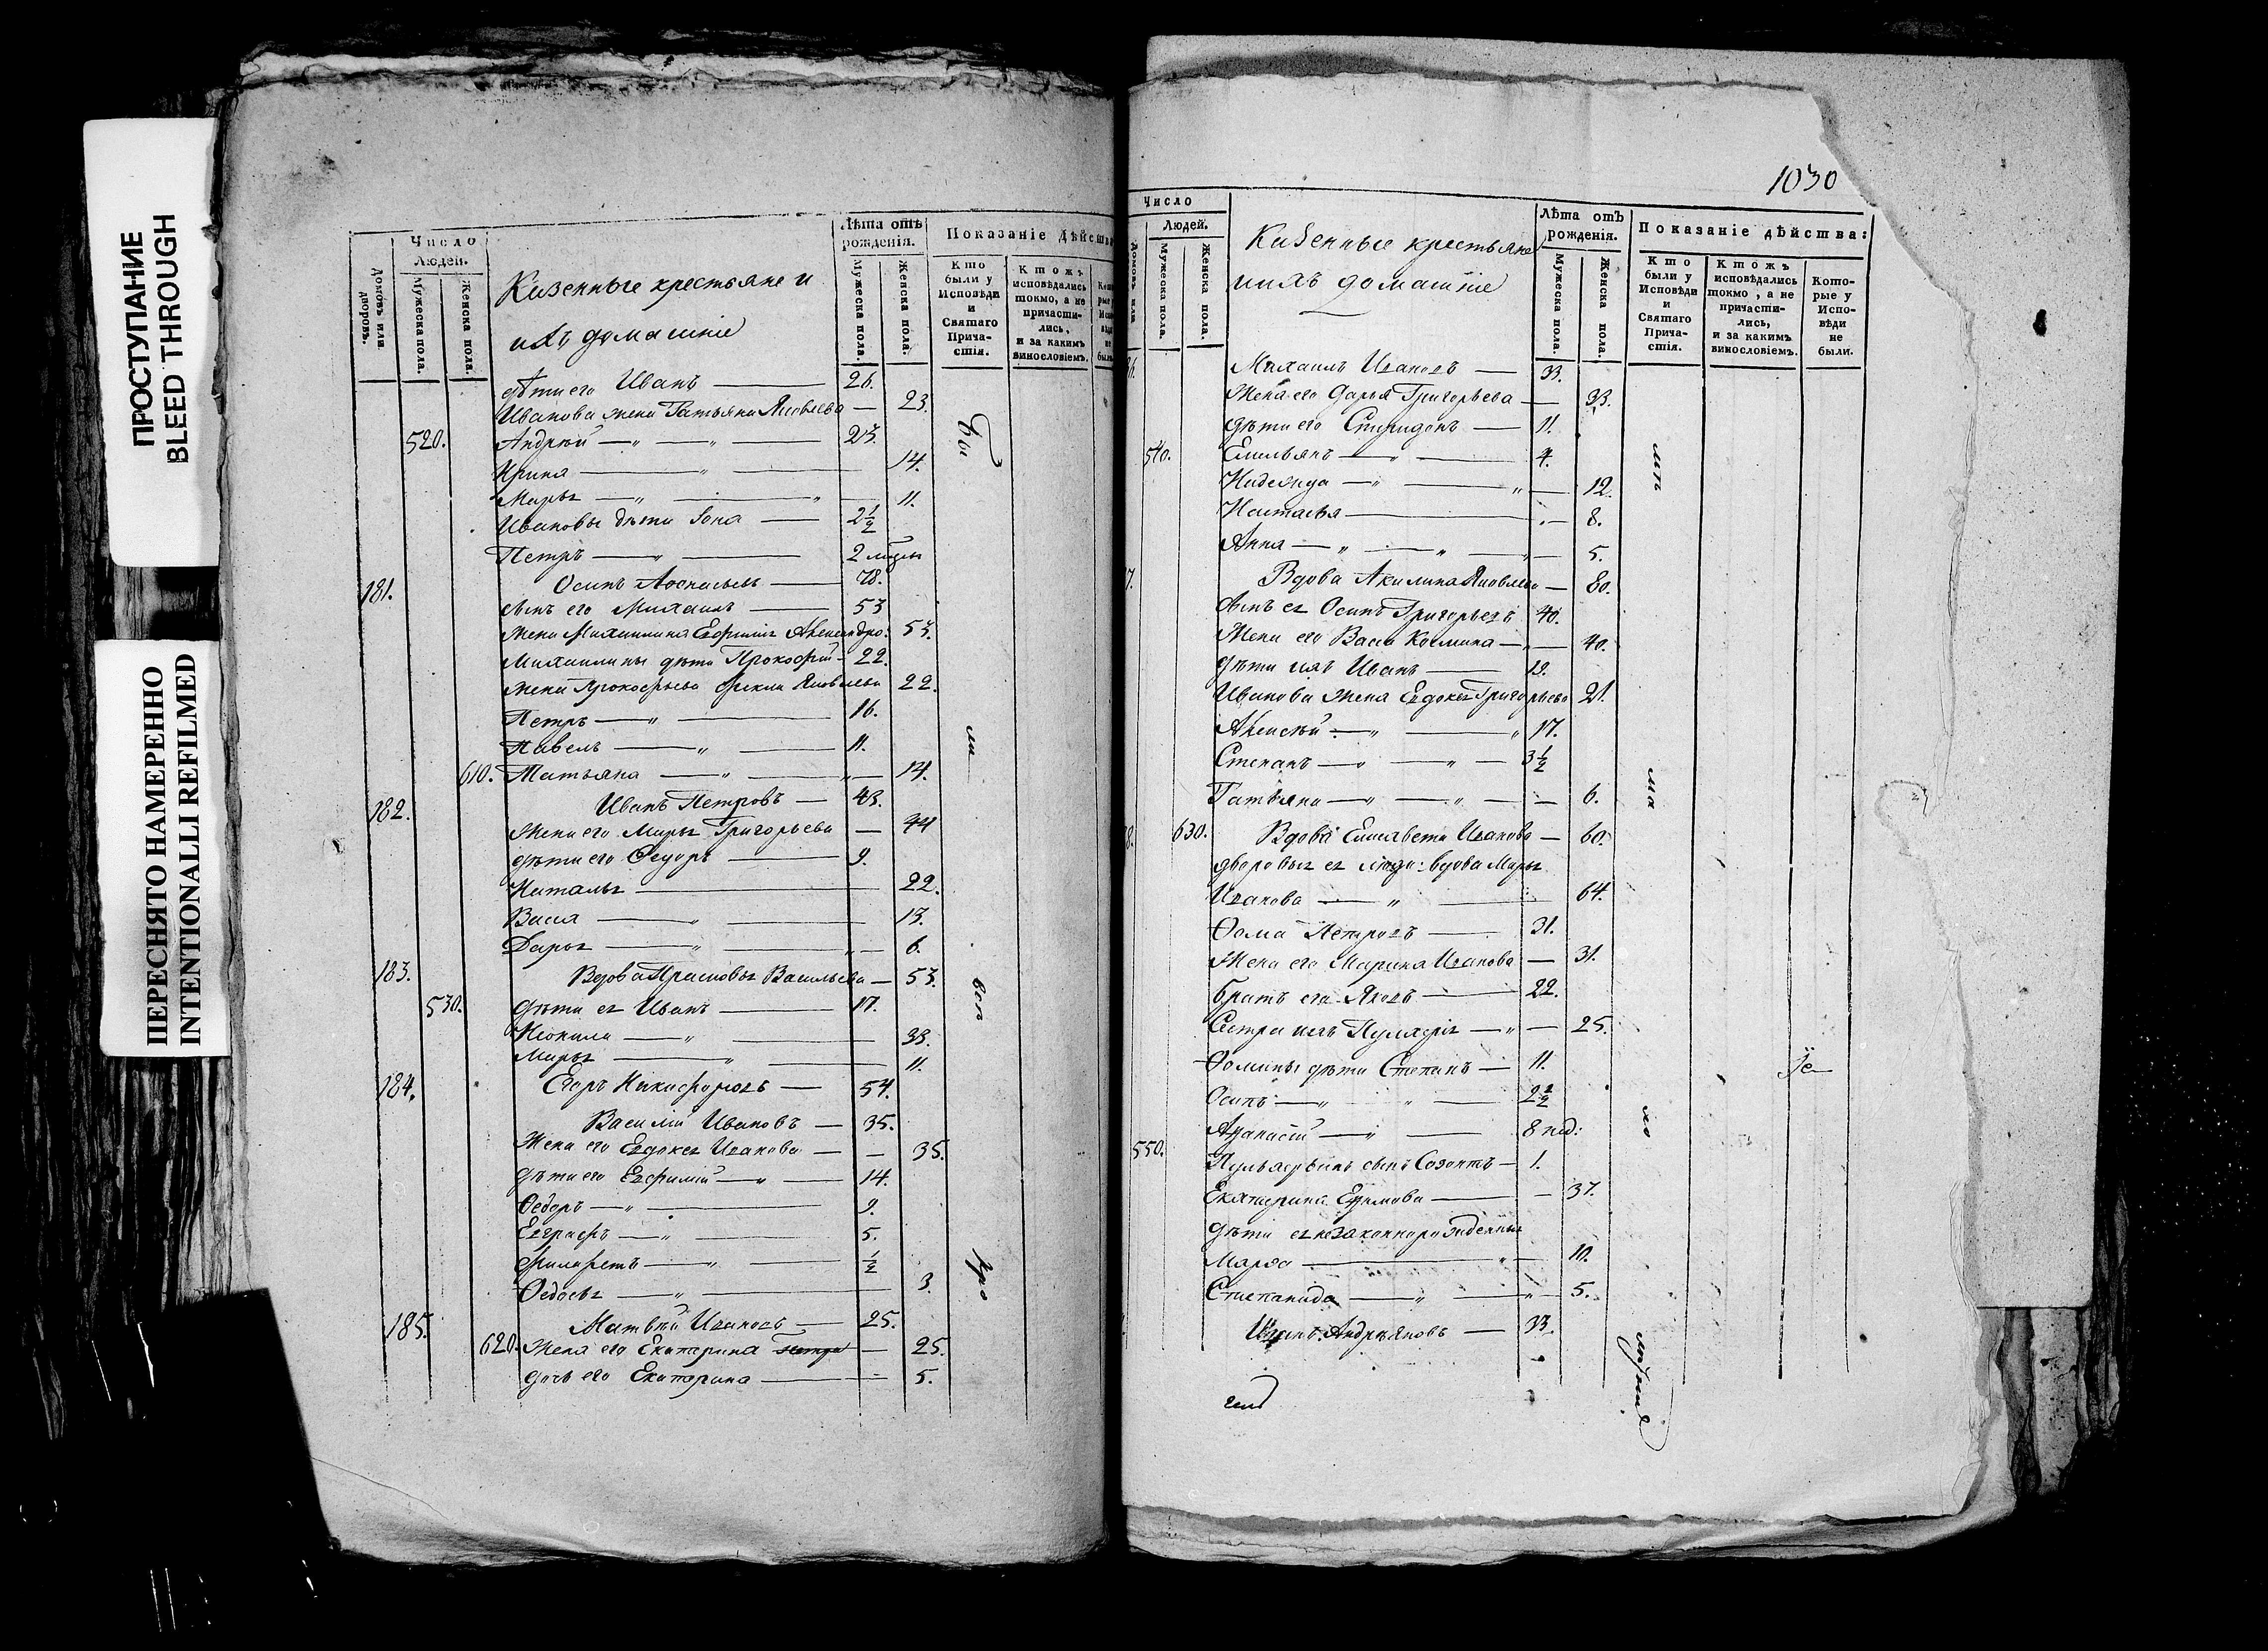 ПРОСТУПАНИЕ
BLEED THROUGH
ПЕРЕСНЯТО НАМЕРЕННО
INTENTIONALLI REFILMED
Число
Людей.
Домовъ или дворовъ.
Мужеска пола.
Женска пола.
Казенные крестьяне и
ихъ домашніе
Лѣта отъ
рожденія.
Мужеска пола.
Женска пола.
Показаніе дѣйства
Кто
были у
Исповѣди
и
Святаго
Прича-
стія.
Ктожъ
исповѣдались
токмо, а не
причасти-
лись,
и за какимъ
винословіемъ.
дѣти его Иванъ 26.
Иванова жена Татьяна Яковлева 23.
520. Андрей 23
Ирина 14.
Марья 11.
Ивановы дѣти Іона 2 1/2
Петръ 2
181. Осипъ Афонасьевъ 78.
сынъ его Михаилъ 53
жена Михаилина Евфимія Александро: 53.
Михаилины дѣти Прокофій 22.
жена Прокофьева Фекла Яковлева 22.
Петръ 16.
Павелъ 11.
610. Татьяна 14.
182. Иванъ Петровъ 43.
Жена его Марья Григорьева 44
дѣти его Федоръ 9.
Наталья 22.
Васса 13.
Дарья 6.
183. Вдова Прасковья Васильева 53.
530. дѣти ея Иванъ 17.
Неонила 33.
Марья 11.
184. Егоръ Никифоровъ 54.
Василій Ивановъ 35.
Жена его Евдокея Иванова 35.
дѣти его Евфимій 14.
Ѳедоръ 9.
Евграфъ 5.
Филаретъ 1/2
Ѳедосья 3.
185. Матвѣй Ивановъ 25.
620. Жена его Екатерина 25.
дочь его Екатерина 5.
Бы
ли
вси
1030
Число
Людей.
Домовъ или
Мужеска пола.
Женска пола.
Казенные крестьяне
и ихъ домашніе
Лѣта отъ
рожденія.
Мужеска пола.
Женска пола.
Показаніе дѣйства:
Кто
были у
Исповѣди
и
Святаго
Прича-
стія.
Ктожъ
исповѣдались
токмо, а не
причасти-
лись,
и за какимъ
винословіемъ.
Кото-
рые у
Испо-
вѣди
не
были.
Михаилъ Ивановъ 33.
Жена его Дарья Григорьева 33.
дѣти его Спиридонъ 11.
540. Емельянъ 4.
Надежда 12.
Настасья 8.
Анна 5.
Вдова Акилина Яковлева 80.
сынъ ея Осипъ Григорьевъ 40.
Жена его Васса Космина 40.
дѣти ихъ Иванъ 19.
Иванова жена Евдокея Григорьева 21.
Алексѣй 17.
Степанъ 3 1/2
Татьяна 6.
630. Вдова Елисавета Иванова 60.
дворовыя ея люди: вдова Марья
Иванова 64.
Ѳома Петровъ 31.
Жена его Марина Иванова 31.
братъ его Яковъ 22.
Сестра ихъ 25.
Ѳомины дѣти Степанъ 11.
Осипъ 2 1/2
Афанасій 8 нед:
550. сынъ Созонтъ 1.
Екатерина Ефимова 37.
дѣти ея незаконнорожденныя
Марѳа 10.
Степанида 5.
Иванъ Андрѣяновъ 33.